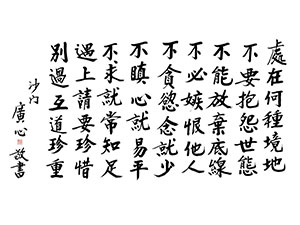 處在何種境地
不要抱怨世態
不能放棄底線
不必嫉恨他人
不貪慾念就少
不瞋心就易平
不求就常知足
遇上請要珍惜
別過互道珍重
沙门廣心敬書